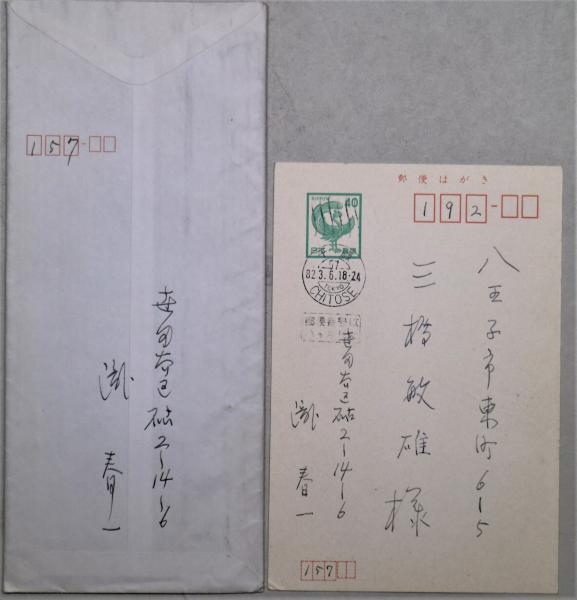 157
世田谷区砧2-14-6
瀧 春一
郵便はがき
192
NIPPON
40
日本郵便
57
82.3.6.18-24
TOKYO
CHITOSE
八王子市東町6-5
三橋敏雄様
世田谷区砧2-14-6
瀧 春一
157